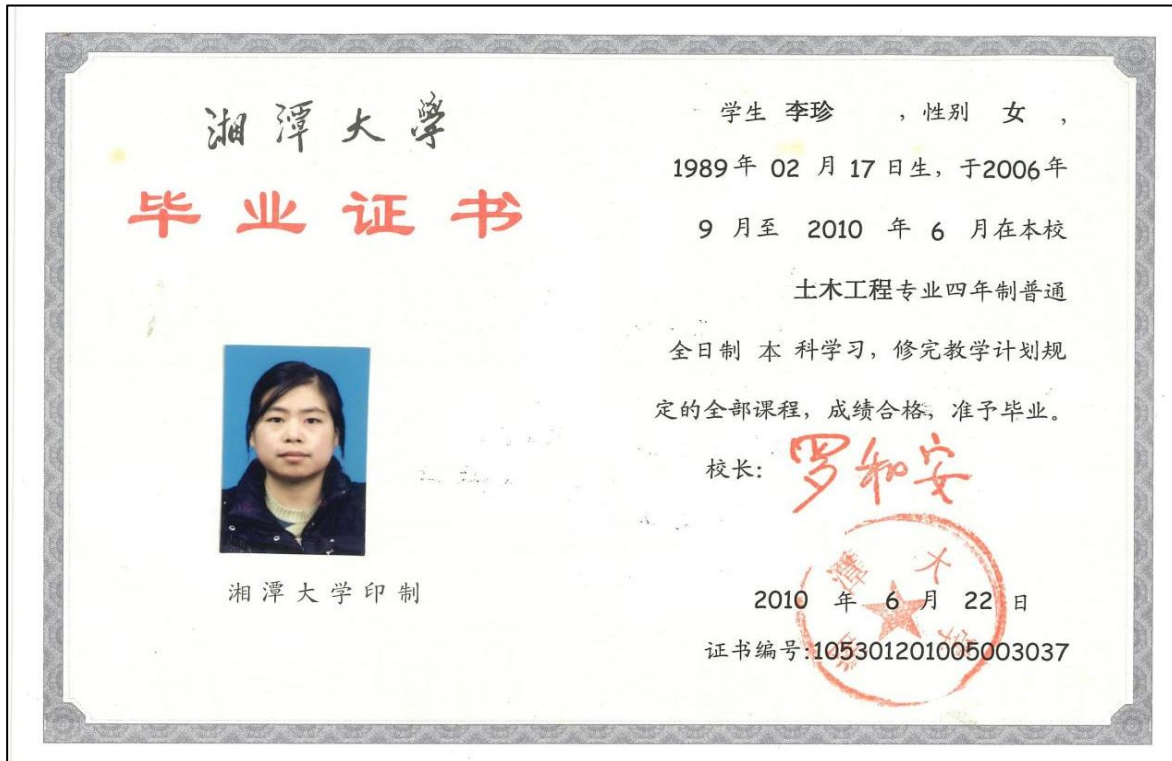 湘潭大學
毕业证书
湘潭大学印制
学生 李珍 ，性别 女 ，
1989年 02 月 17 日生，于2006年
9 月至 2010 年 6 月在本校
土木工程专业四年制普通
全日制 本 科学习，修完教学计划规
定的全部课程，成绩合格，准予毕业。
校长：罗和安
湘潭大学
2010 年 6 月 22 日
证书编号:105301201005003037